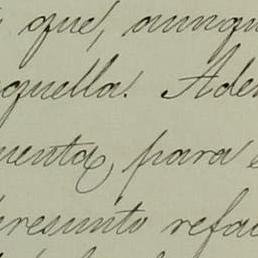 que, aunqu
quella. Ade
uenta, para
resunto refa